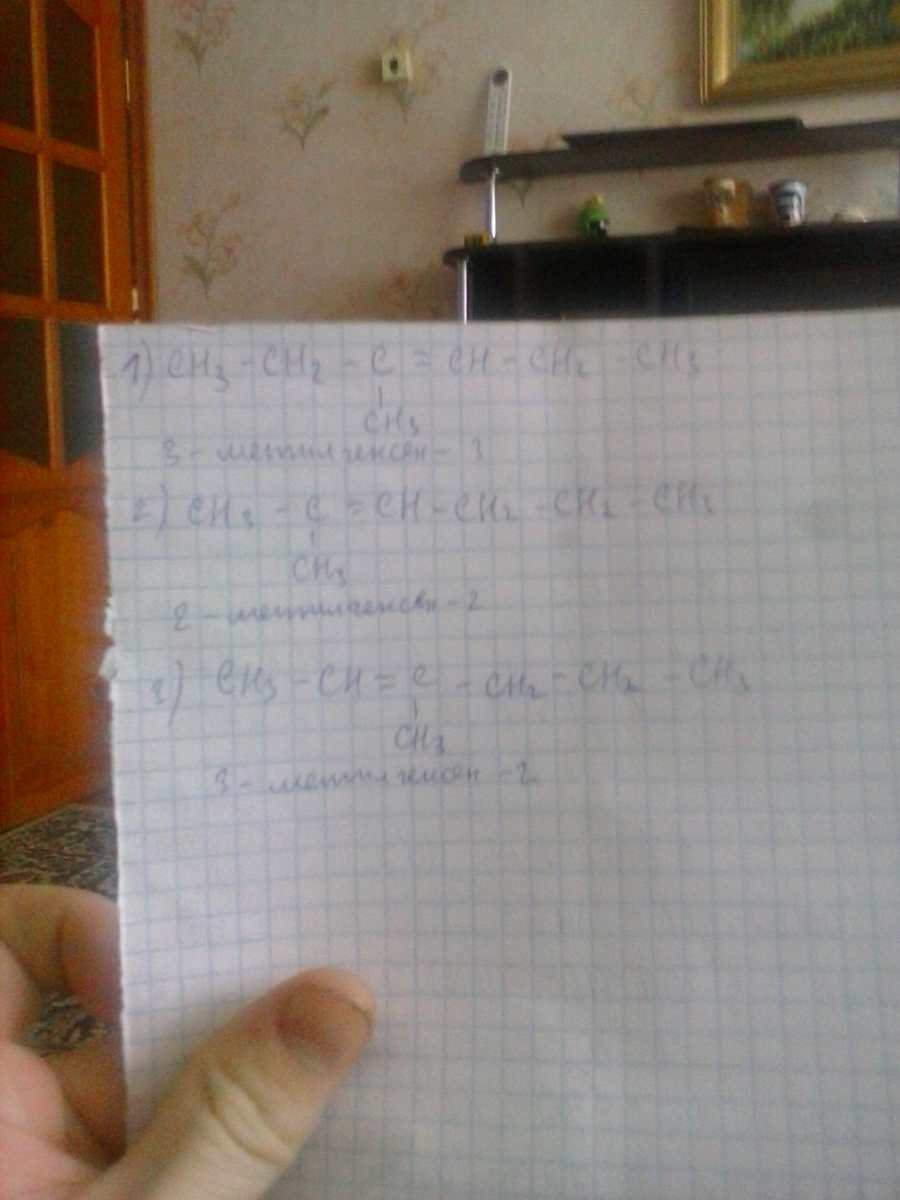 1) CH₃ - CH₂ - C = CH - CH₂ - CH₃
CH₃
3 - метилгексен - 3
2) CH₃ - C = CH - CH₂ - CH₂ - CH₃
CH₃
2 - метилгексен - 2
3) CH₃ - CH = C - CH₂ - CH₂ - CH₃
CH₃
3 - метилгексен - 2